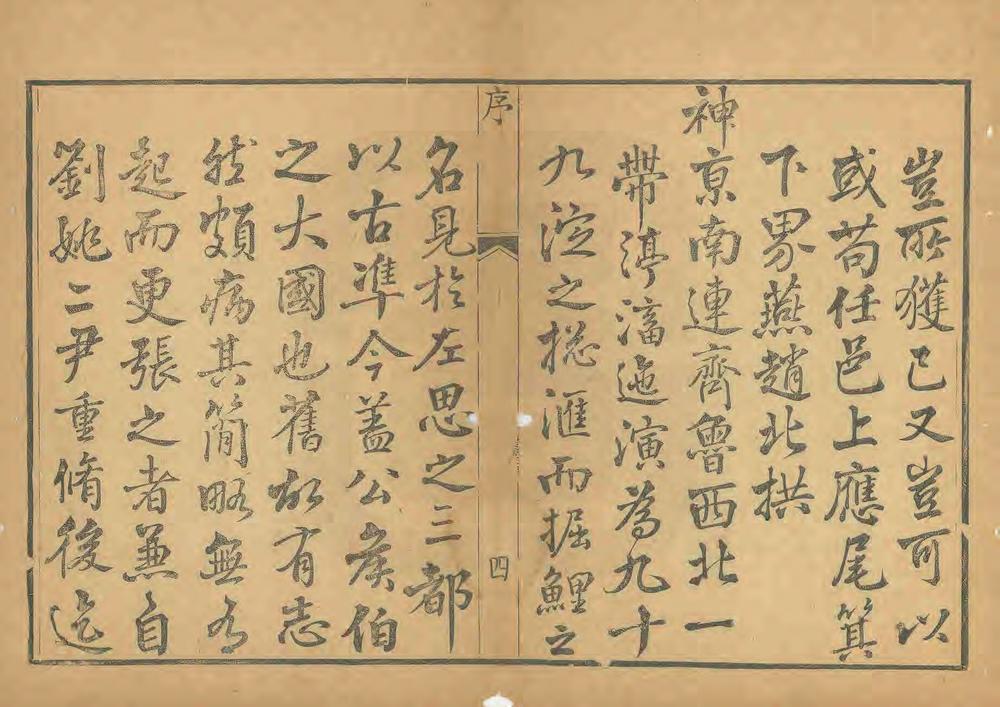 豈所獲已又豈可以
或苟任邑上應尾箕
下界燕趙北拱
神京南連齊魯西北一
帶渟滀迤演為九十
九淀之総滙而掘鯉之
序
四
名見於左思之三都
以古準今蓋公矦伯
之大國也舊故有志
然頗病其簡略無有
起而更張之者兼自
劉姚二尹重脩後迄